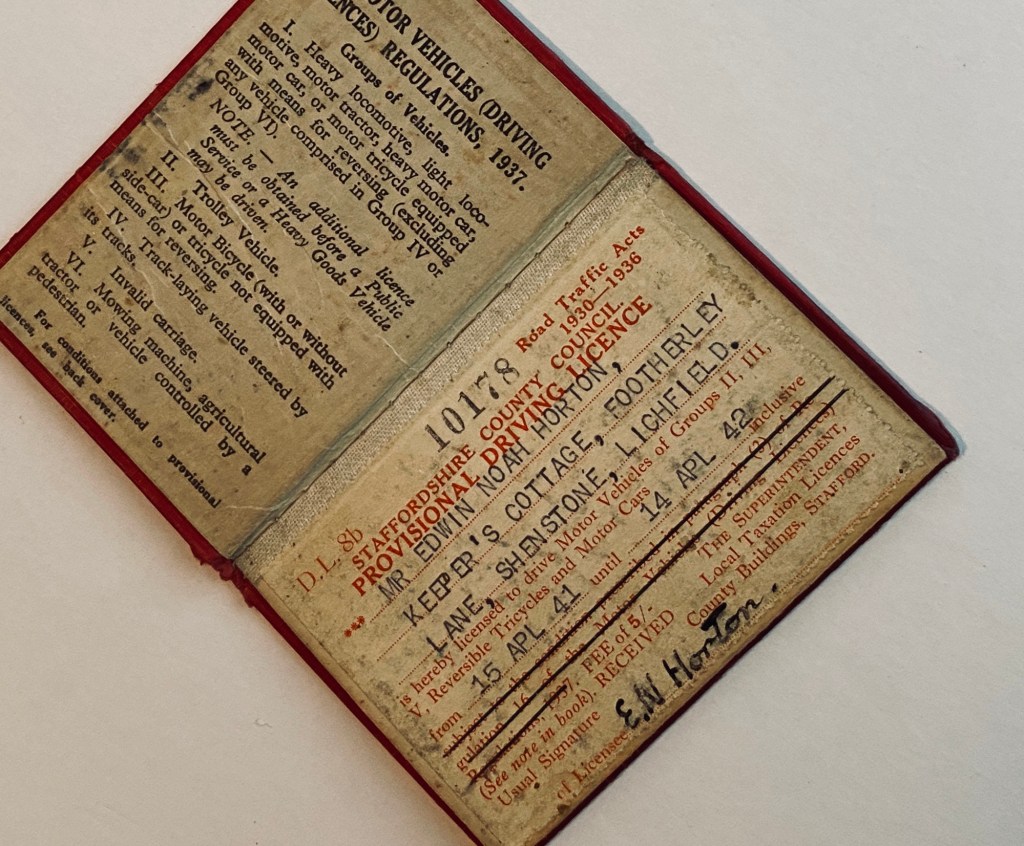 OTOR VEHICLES (DRIVING
ENCES) REGULATIONS, 1937.
Groups of Vehicles.
I. Heavy locomotive, light loco-
motive, motor tractor, heavy motor car,
motor car, or motor tricycle equipped
with means for reversing (excluding
any vehicle comprised in Group IV or
Group VI).
NOTE. — An additional licence
must be obtained before a Public
Service or a Heavy Goods Vehicle
may be driven.
II. Trolley Vehicle.
III. Motor Bicycle (with or without
side-car) or tricycle not equipped with
means for reversing.
IV Track-laying vehicle steered by
its tracks.
V. Invalid carriage.
VI. Mowing machine, agricultural
tractor or vehicle controlled by a
pedestrian.
For conditions attached to provisional
licences, see back cover.
D.L. 8b
10178
Road Traffic Acts
1930—1936
STAFFORDSHIRE COUNTY COUNCIL.
PROVISIONAL DRIVING LICENCE
*** MR EDWIN NOAH HORTON,
KEEPER'S COTTAGE, FOOTHERLEY
LANE, SHENSTONE, LICHFIELD.
is hereby licensed to drive Motor Vehicles of Groups II, III,
V, Reversible Tricycles and Motor Cars
from 15 APL 41 until 14 APL 42 inclusive
(See note in book). FEE of 5/- RECEIVED
THE SUPERINTENDENT,
Local Taxation Licences
County Buildings, STAFFORD.
Usual Signature
of Licensee
E.N Horton.